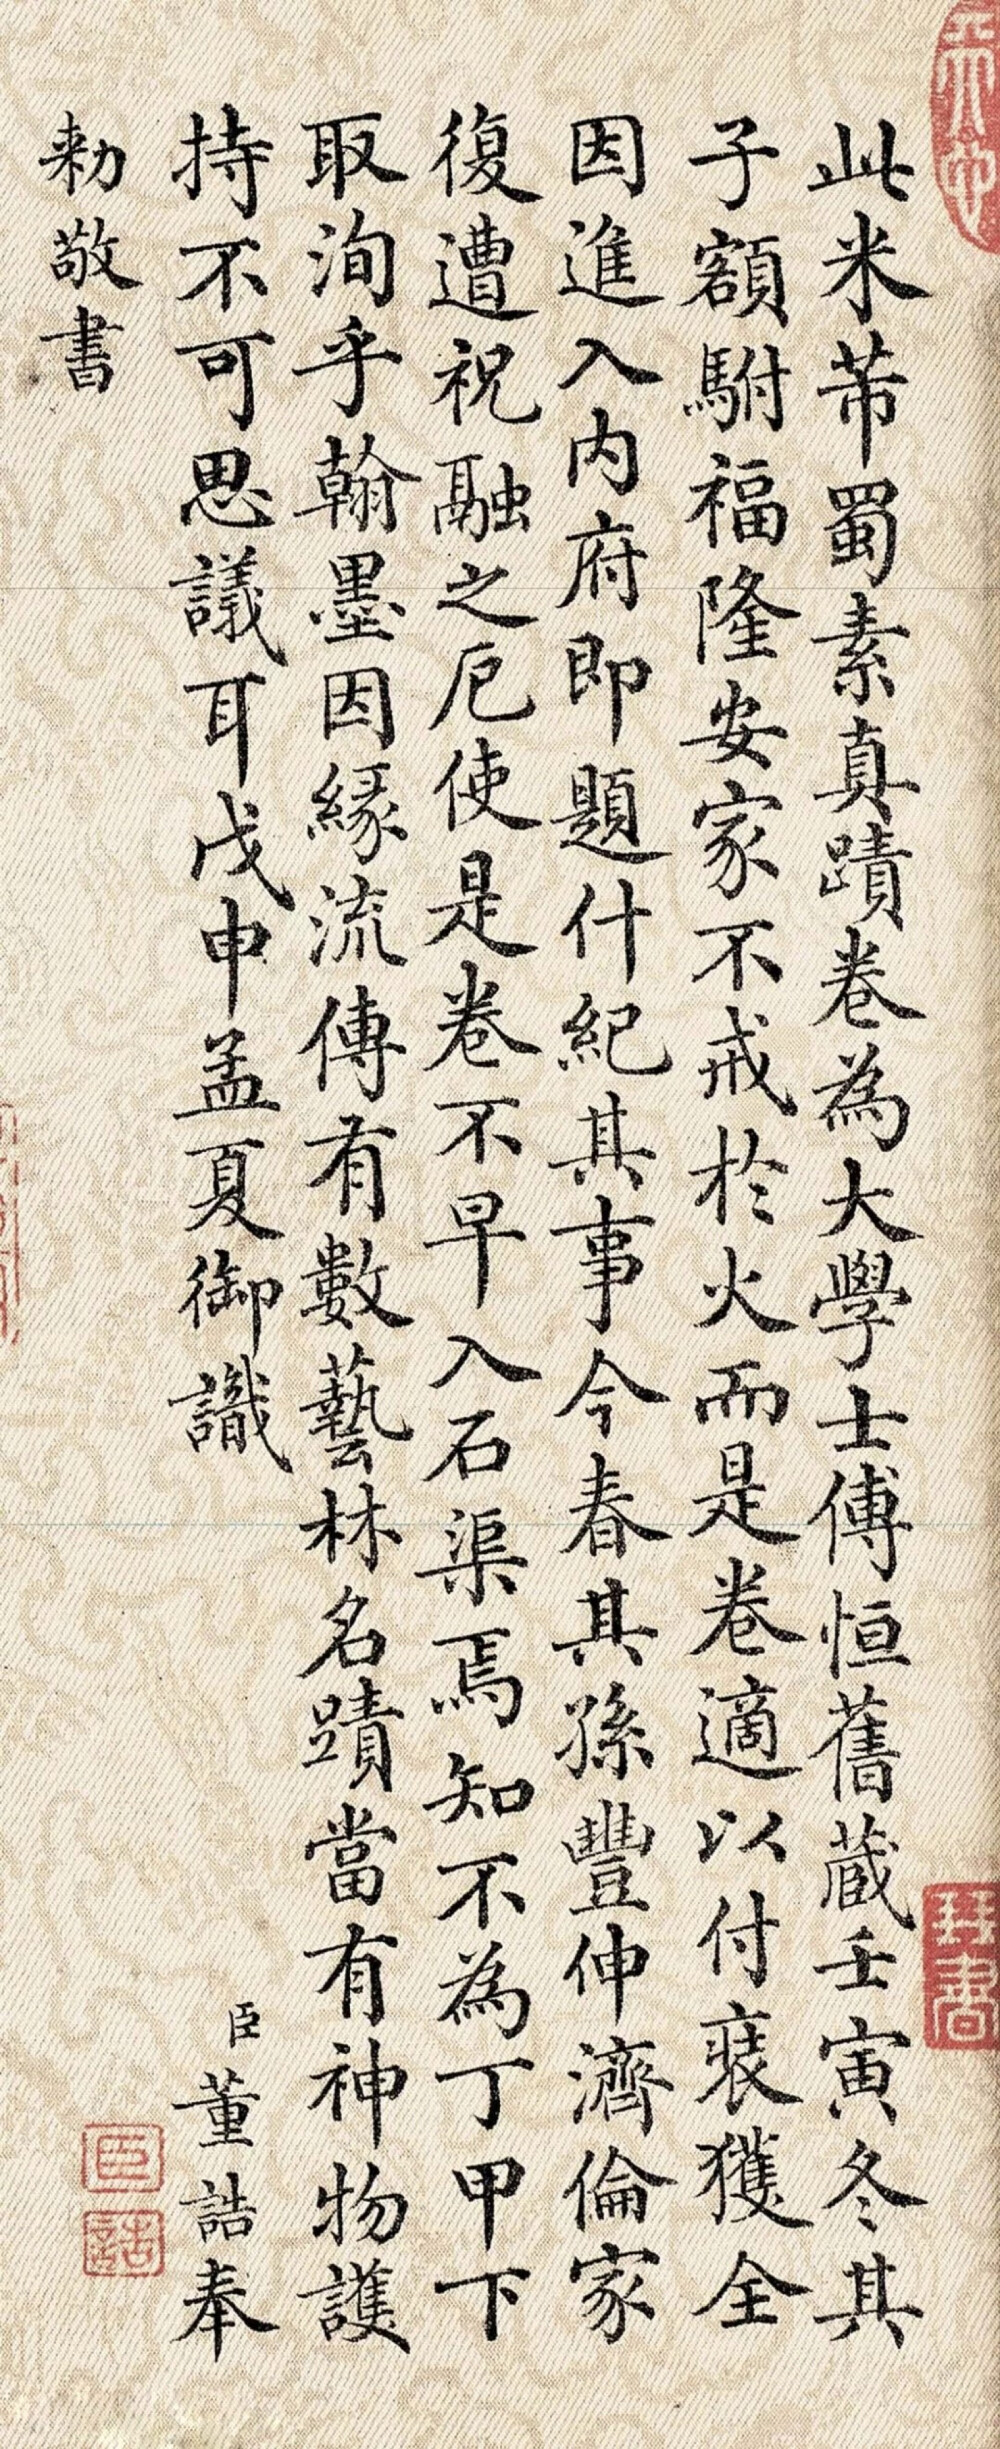 此米芾蜀素真蹟卷為大學士傅恒舊藏壬寅冬其
子額駙福隆安家不戒於火而是卷適以付裝獲全
因進入内府即題什紀其事今春其孫豐伸濟倫家
復遭祝融之厄使是卷不早入石渠焉知不為丁甲下
取洵乎翰墨因緣流傳有數藝林名蹟當有神物護
持不可思議耳戊申孟夏御識
臣董誥奉
勅敬書
臣
誥
琴書